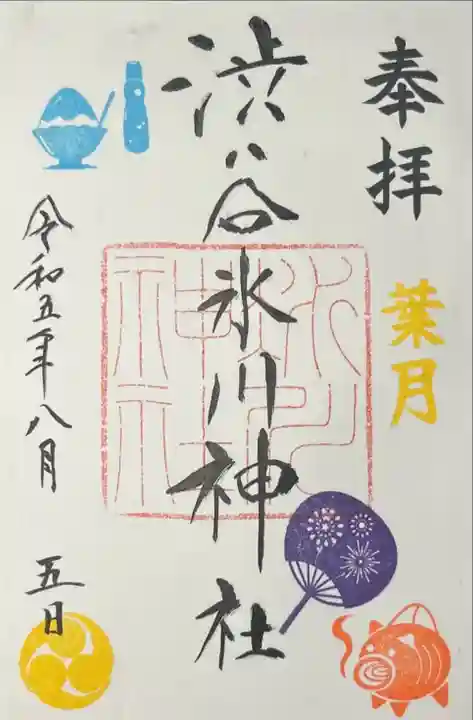 奉拝
葉月
渋谷氷川神社
氷川神社
令和五年八月五日